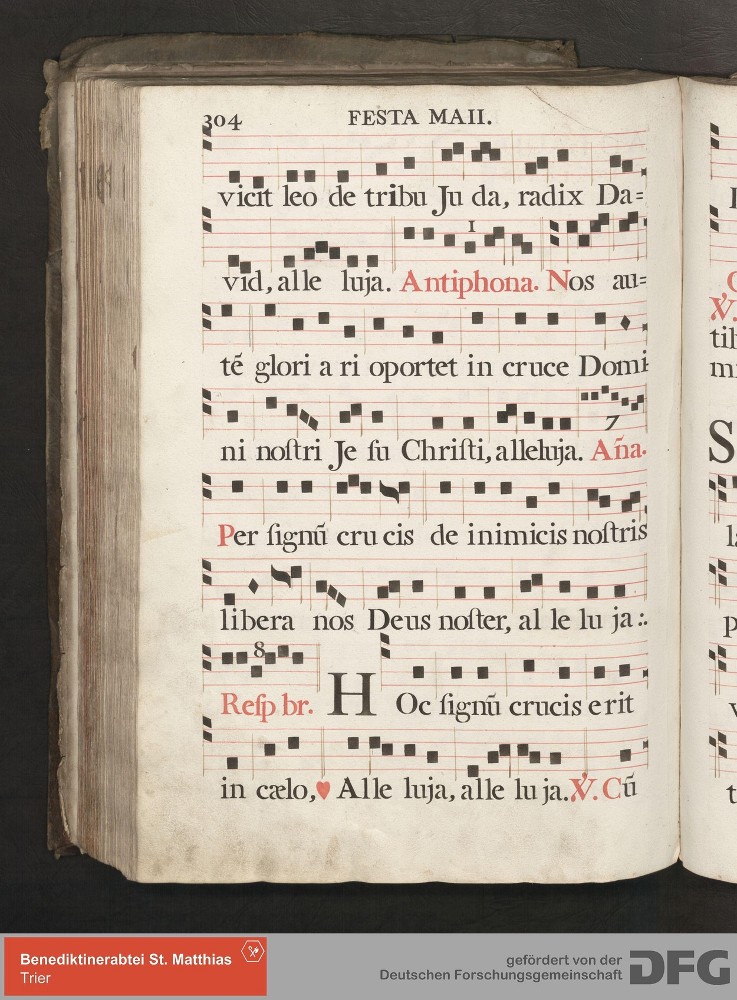 304 FESTA MAII.
vicit leo de tribu Ju da, radix Da=
1
vid, alle luja. Antiphona. Nos au=
tē glori a ri oportet in cruce Domi
7
ni noſtri Je ſu Chriſti, alleluja. Aña.
Per ſignū cru cis de inimicis noſtris
libera nos Deus noſter, al le lu ja:.
8
Reſp br. HOc ſignū crucis erit
in cælo, ♥ Alle luja, alle lu ja. ℣. Cū
Benediktinerabtei St. Matthias
Trier
gefördert von der
Deutschen Forschungsgemeinschaft
DFG